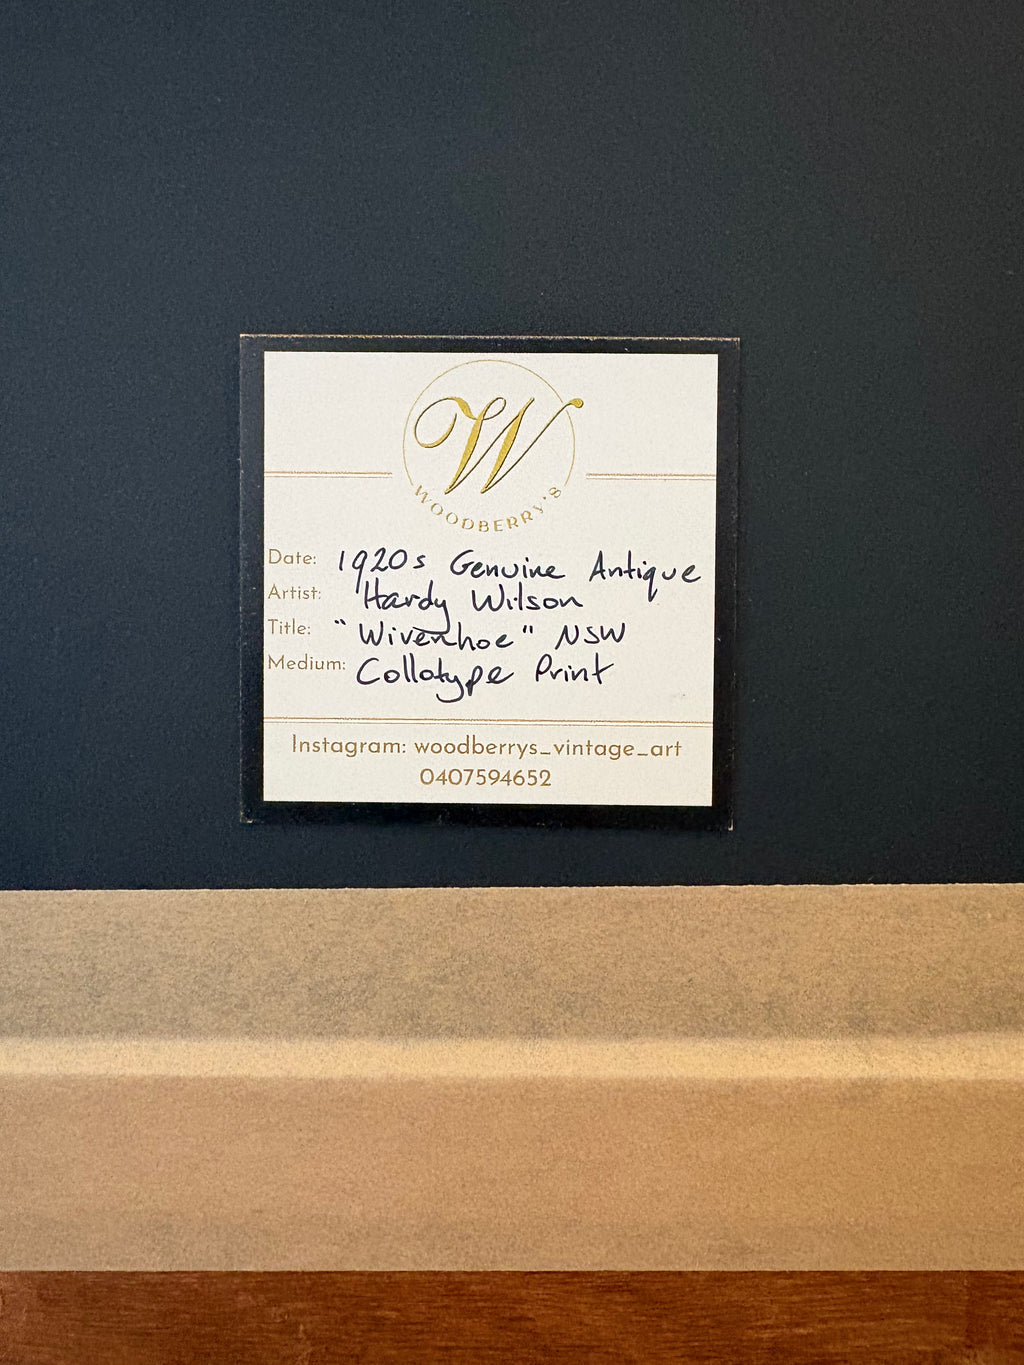 W
WOODBERRY'S
Date: 1920s Genuine Antique
Artist: Hardy Wilson
Title: "Wivenhoe" NSW
Medium: Collotype Print
Instagram: woodberrys_vintage_art
0407594652